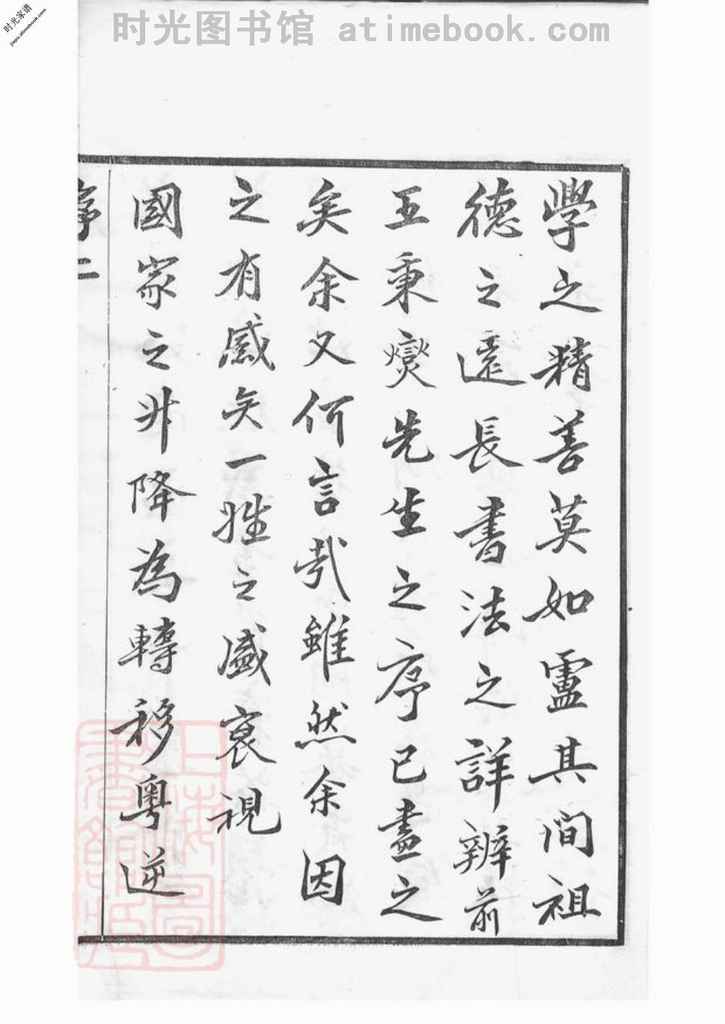 时光图书馆 atimebook.com
时光家谱
學之精善莫如盧其间祖
德之遠長書法之詳辨前
王秉燮先生之序已盡之
矣余又何言哉雖然余因
之有感矣一姓之盛衰視
國家之升降為轉移粵逆
序二
上海圖書館藏